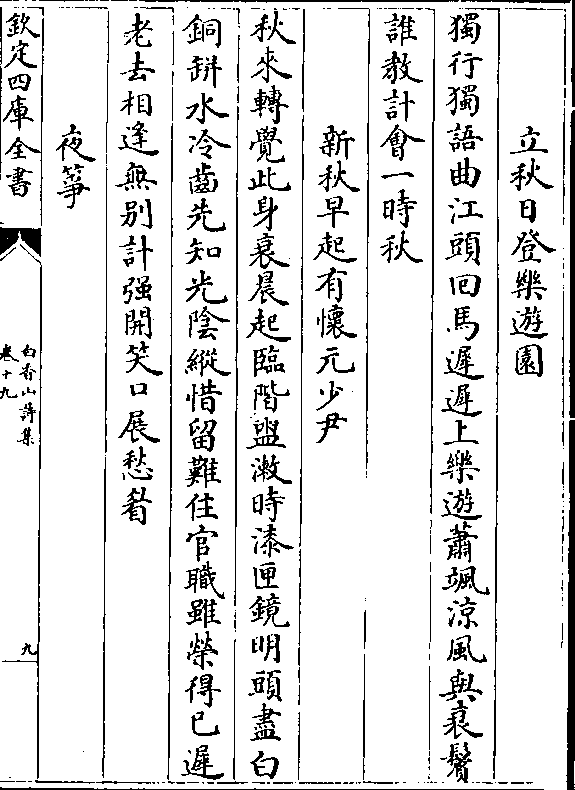 立秋日登樂遊園
獨行獨語曲江頭回馬遲遲上樂遊蕭颯涼風與衰鬢
誰教計會一時秋
新秋早起有懷元少尹
秋來轉覺此身衰晨起臨階盥漱時漆匣鏡明頭盡白
銅缾水冷齒先知光陰縱惜留難住官職雖榮得已遲
老去相逢無别計强開笑口展愁眉
夜箏
欽定四庫全書
白香山詩集
卷十九
九